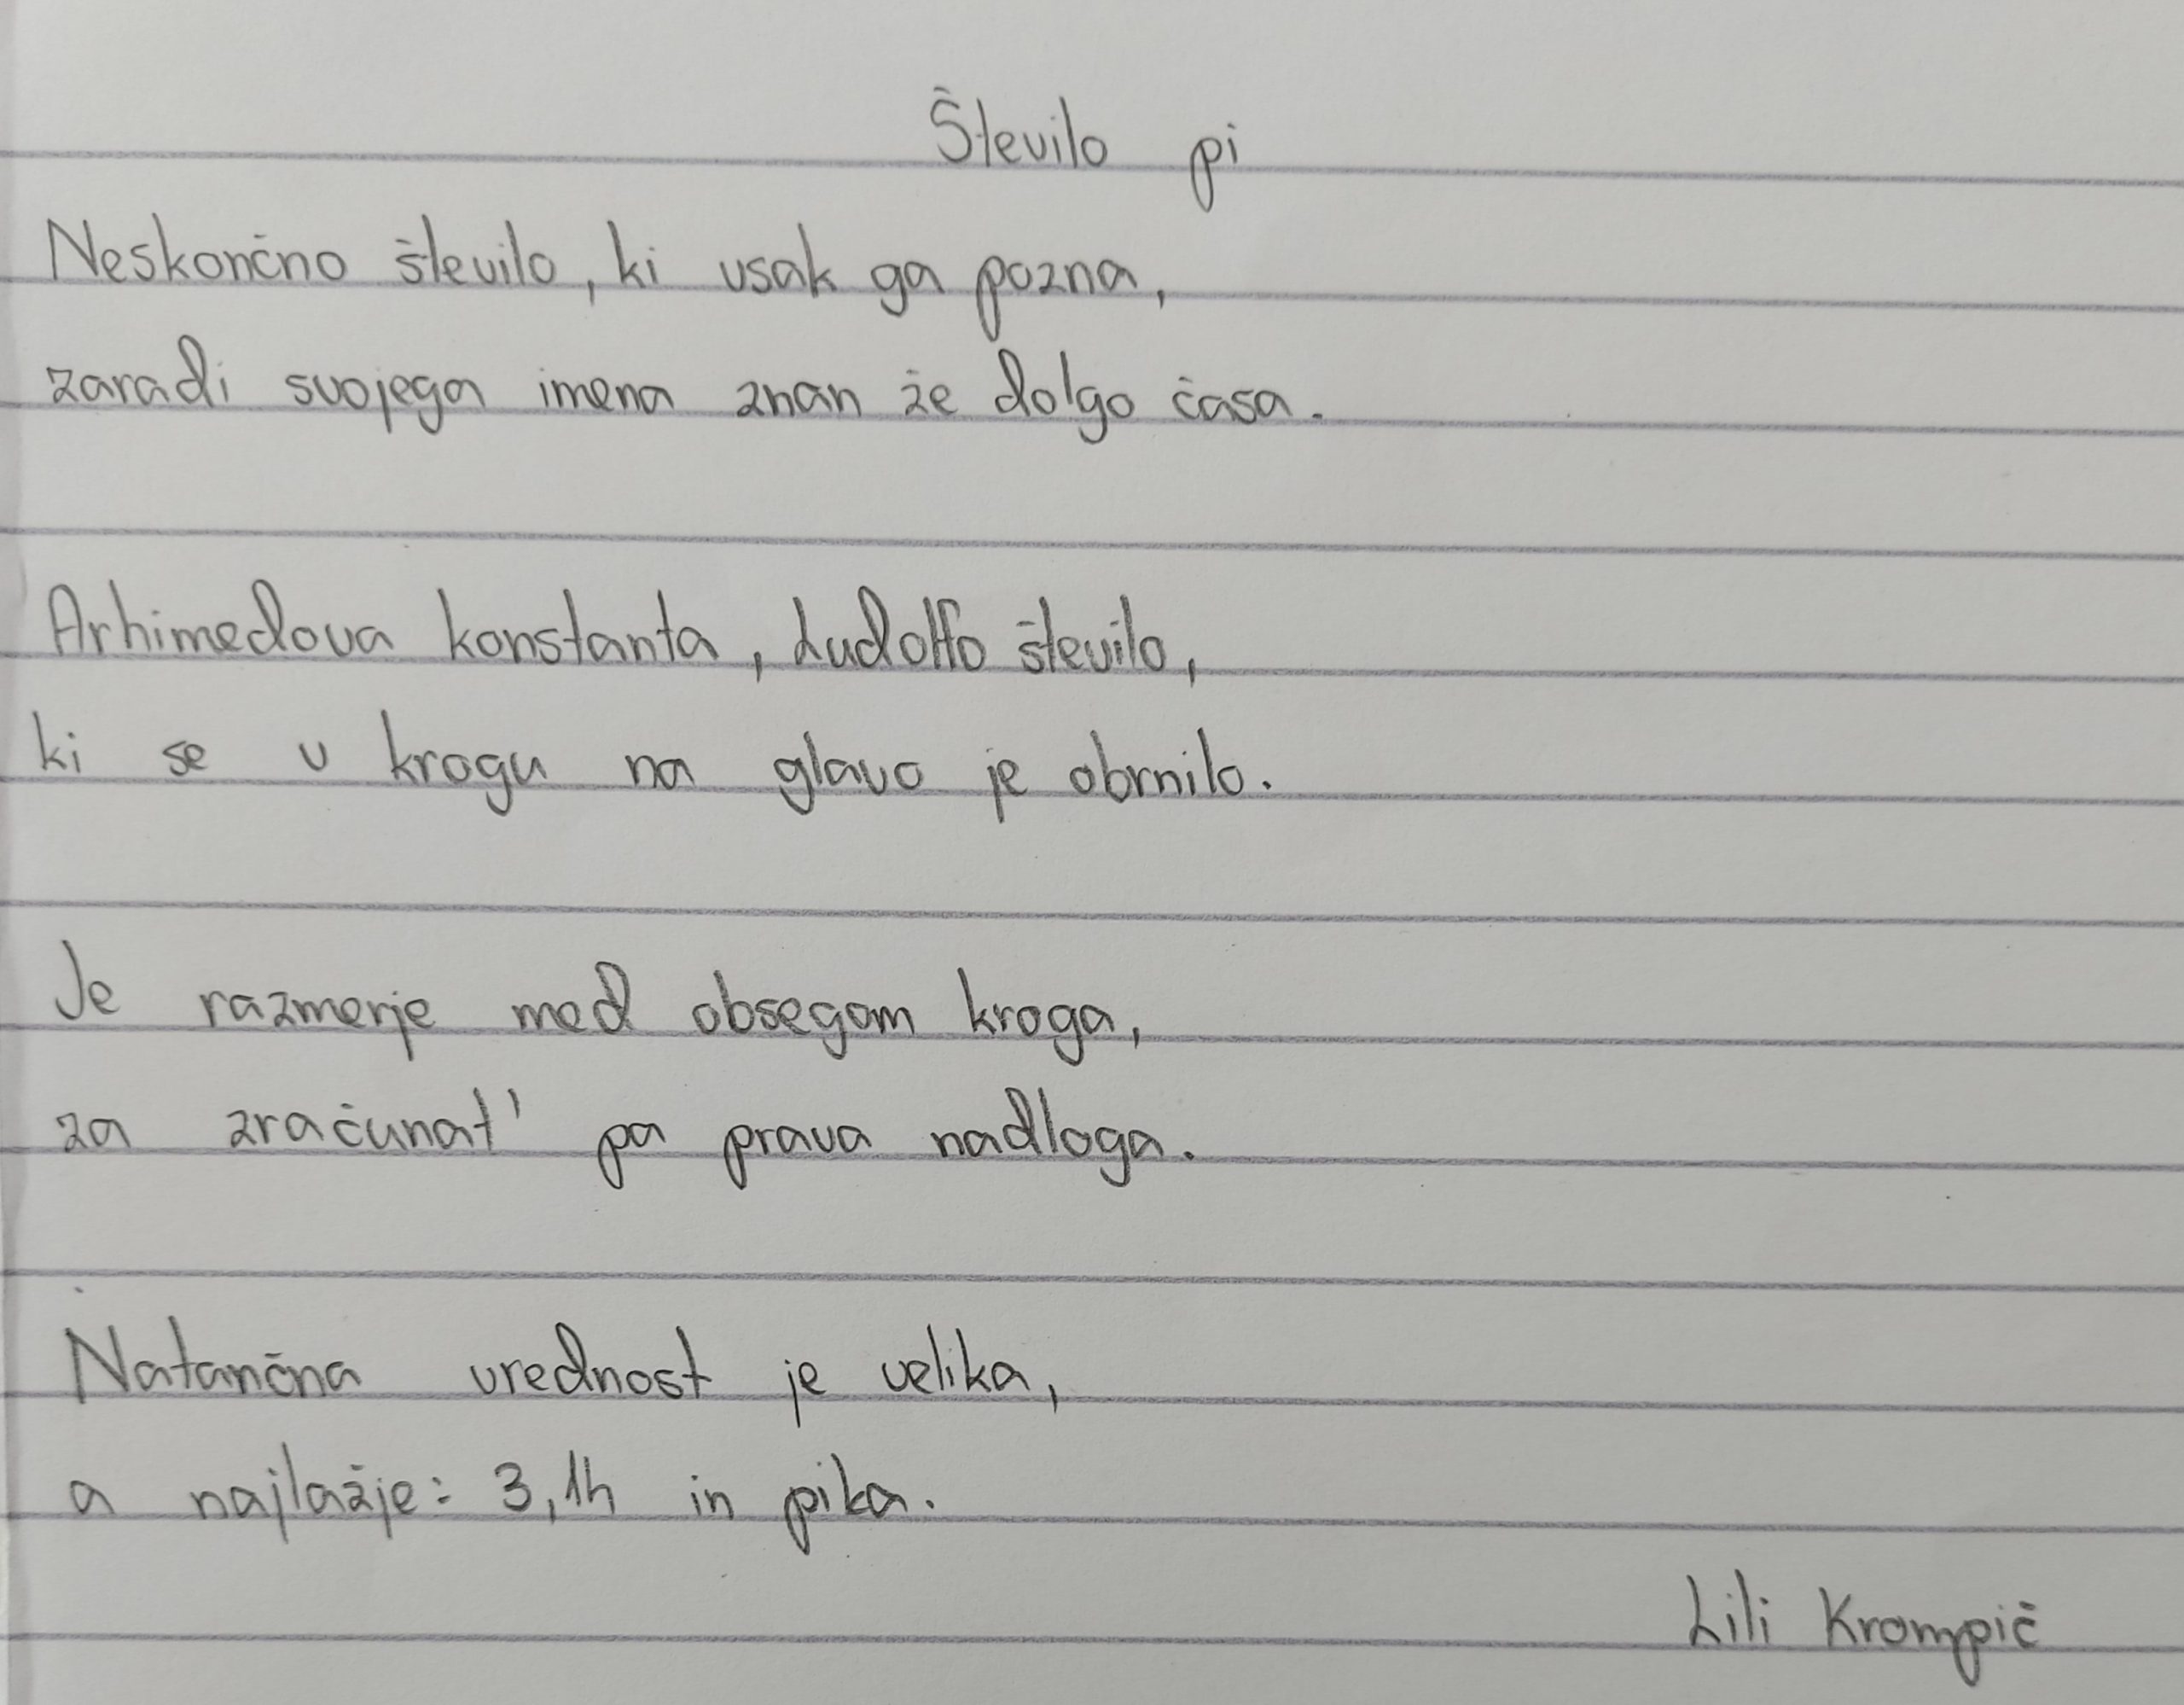 Število pi
Neskončno število, ki vsak ga pozna,
zaradi svojega imena znan že dolgo časa.
Arhimedova konstanta, Ludolfo število,
ki se v krogu na glavo je obrnilo.
Je razmerje med obsegom kroga,
za zračunat' pa prava nadloga.
Natančna vrednost je velika,
a najlažje: 3,14 in pika.
Lili Krompič